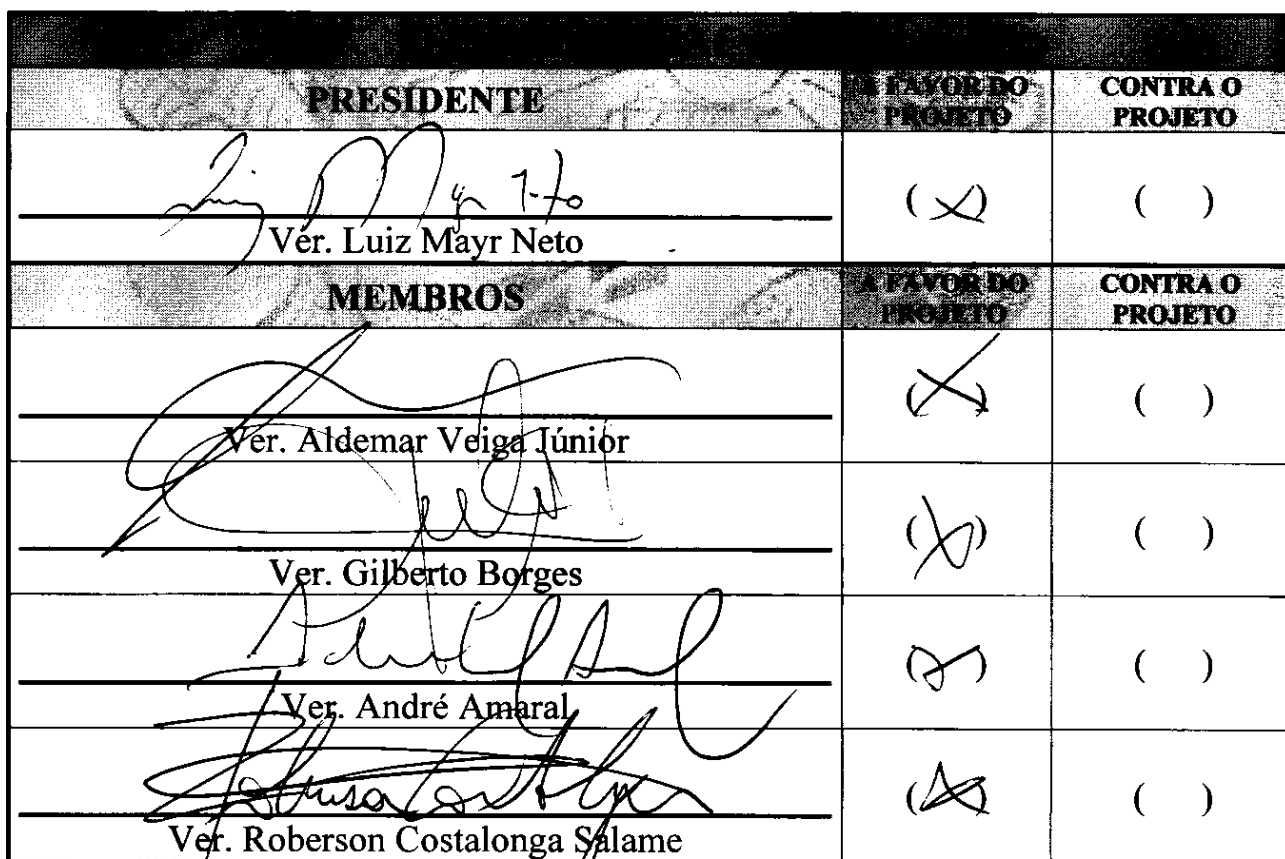 PRESIDENTE A FAVOR DO PROJETO CONTRA O PROJETO
( X ) ( )
Ver. Luiz Mayr Neto
MEMBROS A FAVOR DO PROJETO CONTRA O PROJETO
( X ) ( )
Ver. Aldemar Veiga Júnior
( X ) ( )
Ver. Gilberto Borges
( X ) ( )
Ver. André Amaral
( X ) ( )
Ver. Roberson Costalonga Salame